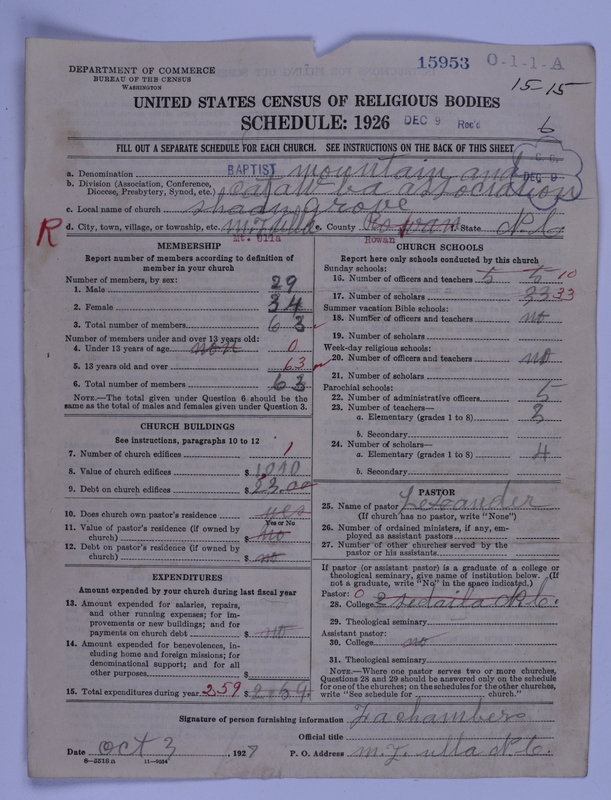 15953 O-1-1-A
DEPARTMENT OF COMMERCE
BUREAU OF THE CENSUS
WASHINGTON
15-15
UNITED STATES CENSUS OF RELIGIOUS BODIES
SCHEDULE: 1926 DEC 9 Rec'd
6
FILL OUT A SEPARATE SCHEDULE FOR EACH CHURCH. SEE INSTRUCTIONS ON THE BACK OF THIS SHEET
a. Denomination BAPTIST mountain and DEC 9
b. Division (Association, Conference, Diocese, Presbytery, Synod, etc.) catawba association
c. Local name of church shady grove
R d. City, town, village, or township, etc. Mt. Ulla e. County Rowan Rowan f. State N.C.
MEMBERSHIP
Report number of members according to definition of
member in your church
Number of members, by sex:
1. Male 29
2. Female 34
3. Total number of members 63
Number of members under and over 13 years old:
4. Under 13 years of age non 0
5. 13 years old and over 63
6. Total number of members 63
NOTE.—The total given under Question 6 should be the
same as the total of males and females given under Question 3.
CHURCH BUILDINGS
See instructions, paragraphs 10 to 12
7. Number of church edifices 1
8. Value of church edifices $ 1010
9. Debt on church edifices $ 23.00
10. Does church own pastor's residence yes
Yes or No
11. Value of pastor's residence (if owned by
church) $ no
12. Debt on pastor's residence (if owned by
church) $ no
EXPENDITURES
Amount expended by your church during last fiscal year
13. Amount expended for salaries, repairs,
and other running expenses; for im-
provements or new buildings; and for
payments on church debt $ no
14. Amount expended for benevolences, in-
cluding home and foreign missions; for
denominational support; and for all
other purposes $
15. Total expenditures during year 259 $
CHURCH SCHOOLS
Report here only schools conducted by this church
Sunday schools:
16. Number of officers and teachers 5 5 10
17. Number of scholars 33 33
Summer vacation Bible schools:
18. Number of officers and teachers no
19. Number of scholars
Week-day religious schools:
20. Number of officers and teachers no
21. Number of scholars
Parochial schools:
22. Number of administrative officers 5
23. Number of teachers—
a. Elementary (grades 1 to 8)
b. Secondary
24. Number of scholars—
a. Elementary (grades 1 to 8) 4
b. Secondary
PASTOR
25. Name of pastor
(If church has no pastor, write "None")
26. Number of ordained ministers, if any, em-
ployed as assistant pastors
27. Number of other churches served by the
pastor or his assistants
If pastor (or assistant pastor) is a graduate of a college or
theological seminary, give name of institution below. (If
not a graduate, write "No" in the space indicated.)
Pastor: 0
28. College N.C.
29. Theological seminary
Assistant pastor:
30. College no
31. Theological seminary
NOTE.—Where one pastor serves two or more churches,
Questions 28 and 29 should be answered only on the schedule
for one of the churches; on the schedules for the other churches,
write "See schedule for church."
Signature of person furnishing information chambers
Official title
Date oct 3, 1927 P. O. Address mt ulla N.C.
8—3318 a 11—9324